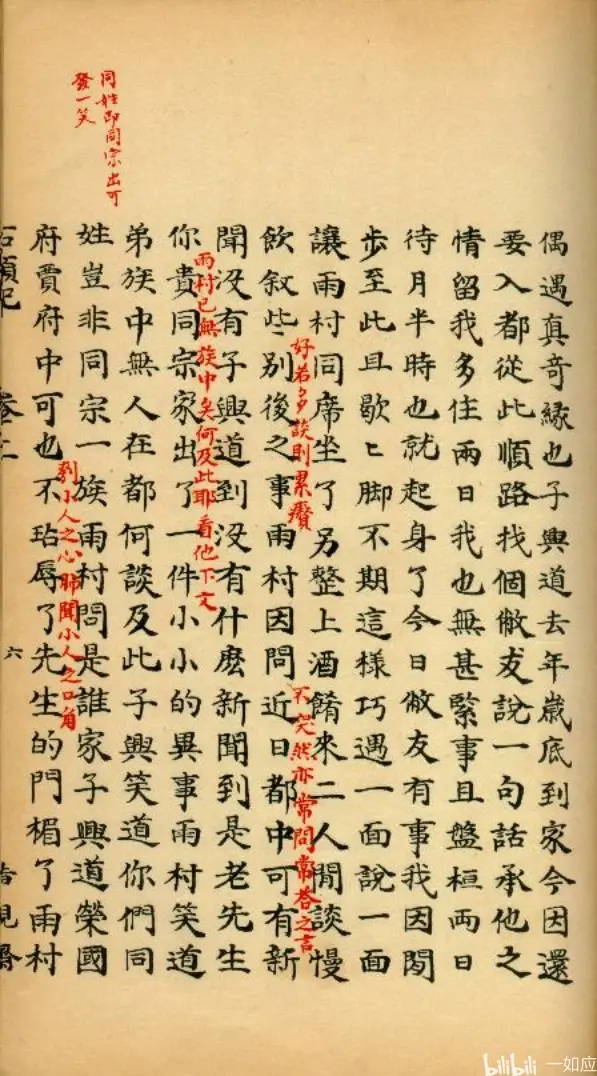 偶遇真奇縁也子興道去年歲底到家今因還
要入都從此順路找個敝友說一句話承他之
情留我多住兩日我也無甚緊事且盤桓兩日
待月半時也就起身了今日敝友有事我因閒
步至此且歇ヒ脚不期這樣巧遇一面說一面
讓雨村同席坐了另整上酒餚來二人閒談慢
好若多談則累贅
不突然亦常問常答之言
飲敘些別後之事雨村因問近日都中可有新
聞没有子興道到没有什麽新聞到是老先生
雨村已無族中矣何及此耶看他下文
你貴同宗家出了一件小小的異事雨村笑道
弟族中無人在都何談及此子興笑道你們同
同姓即同宗出可
發一笑
姓豈非同宗一族雨村問是誰家子興道榮國
刳小人之心肺聞小人之口角
府賈府中可也不玷辱了先生的門楣了雨村
石頭記
卷二
六
bilibili 一如应